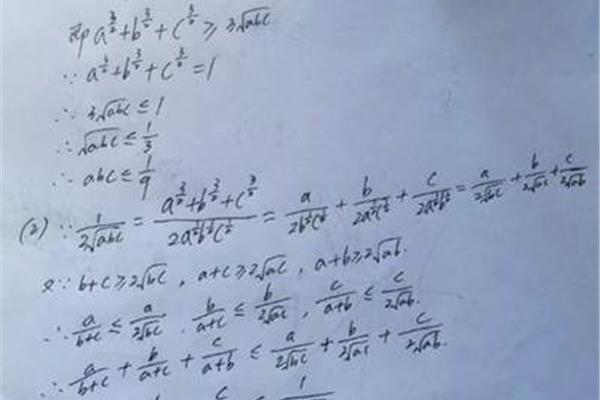 即a^{3/2}+b^{3/2}+c^{3/2}≥3√abc
∵a^{3/2}+b^{3/2}+c^{3/2}=1
∴3√abc≤1
∴√abc≤1/3
∴abc≤1/9
(2)∵1/(2√abc)=(a^{3/2}+b^{3/2}+c^{3/2})/(2a^{1/2}b^{1/2}c^{1/2})=a/(2b^{1/2}c^{1/2})+b/(2a^{1/2}c^{1/2})+c/(2a^{1/2}b^{1/2})=a/(2√bc)+b/(2√ac)+c/(2√ab)
又∵b+c≥2√bc，a+c≥2√ac，a+b≥2√ab.
∴a/(b+c)≤a/(2√bc)，b/(a+c)≤b/(2√ac)，c/(a+b)≤c/(2√ab).
∴a/(b+c)+b/(a+c)+c/(a+b)≤a/(2√bc)+b/(2√ac)+c/(2√ab).